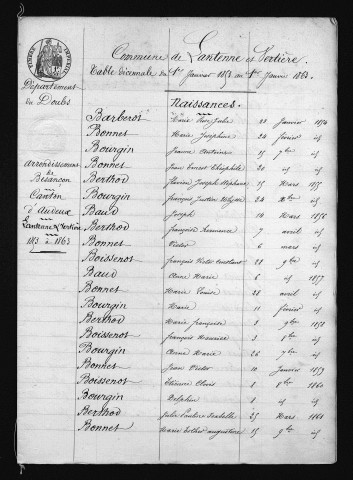 Commune de Lantenne et Vertière
Table Décennale du 1er Janvier 1853 au 1er Janvier 1863.
Département
du Doubs
Arrondissement
de
Besançon
Canton
d'Audeux
Lantenne & Vertière
1853 à 1863
Naissances.
Barberot Marie 28 Janvier 1854
Bonnet Marie Josephine 24 février id
Bourgin Jeanne Antoine 15 7bre id
Bonnet Jean Ernest Théophile 20 id
Berthod Joseph Stéphane 15 Mars 1855
Bourgin François Justin 24 id
Baud Joseph 10 Mars 1856
Berthod Françoise Hermance 7 avril id
Bonnet Victor 6 mars id
Boissenot François Victor Constant 28 id
Baud Anne Marie 6 id 1857
Bonnet Marie Louise 28 avril id
Bourgin Marie 11 février id
Berthod Marie Françoise 3 9bre 1858
Boissenot François Maurice 3 9bre id
Bourgin Anne Marie 26 7bre id
Bonnet Jean Victor 10 Janvier 1859
Boissenot Etienne 1 1860
Bourgin Delphin 8 id
Berthod Julie 25 Mars 1861
Bonnet Marie Esther Augustine 15 9bre id